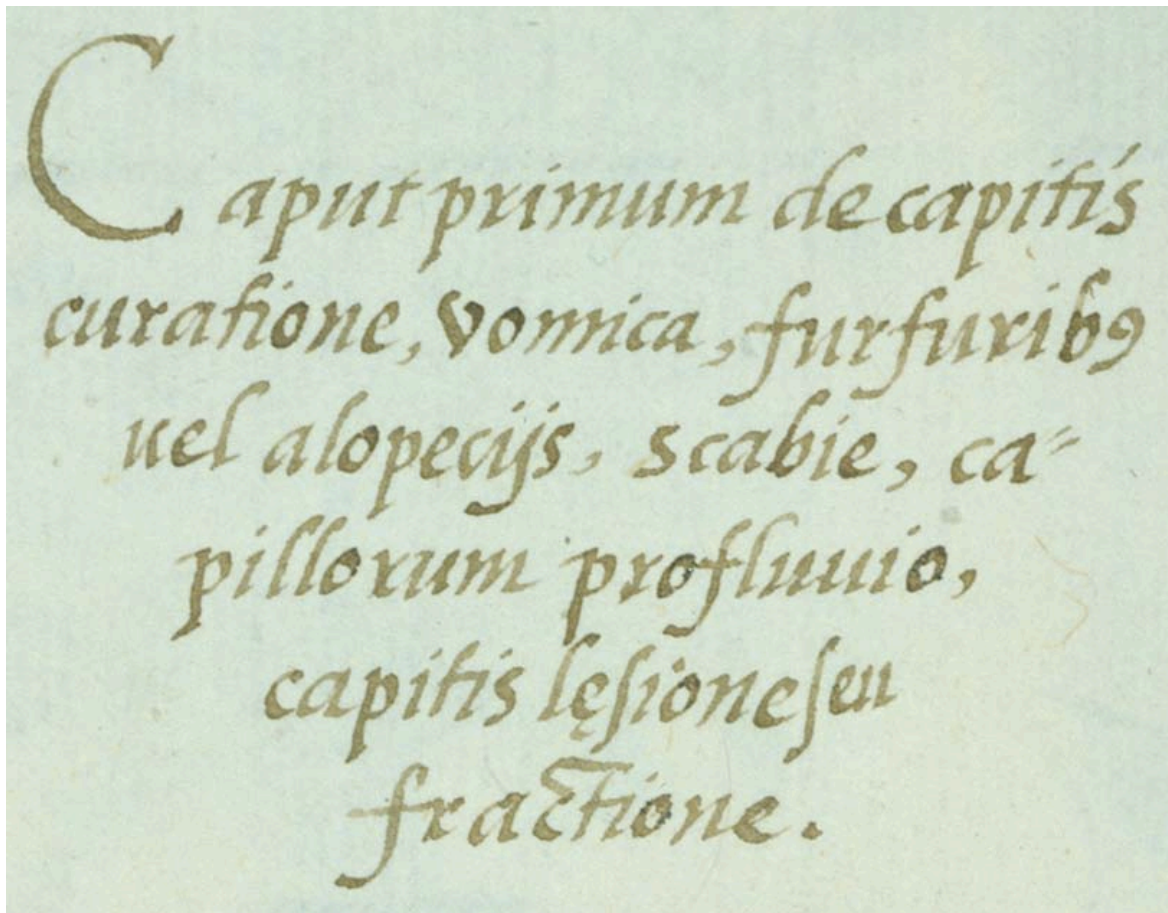 Caput primum de capitis
curatione, vomica, furfuribꝰ
uel alopecijs, scabie, ca-
pillorum profluuio,
capitis lęsione seu
fractione.